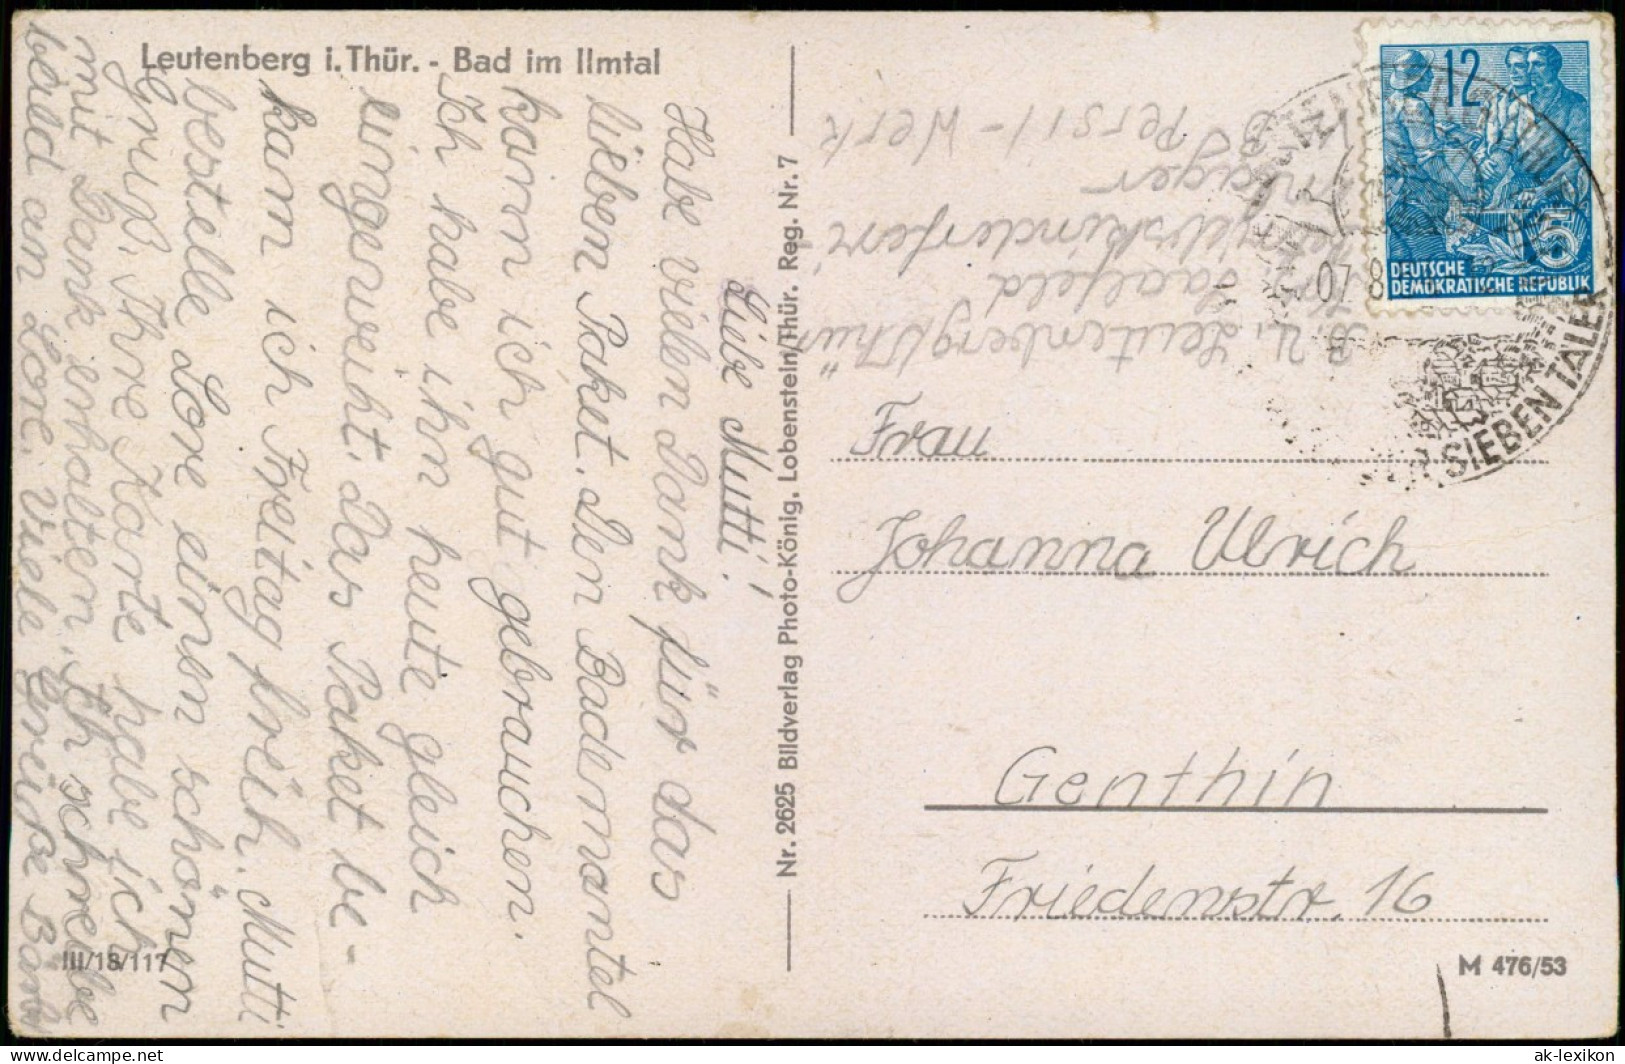 Leutenberg i. Thür. - Bad im Ilmtal
Liebe Mutti!
Habe vielen Dank für das
lieben Paket. Den Bademantel
kann ich gut gebrauchen.
Ich habe ihn heute gleich
eingeweiht. Das Paket be-
kam ich Freitag früh. Mutti
bestelle Lore einen schönen
Gruß. Ihre Karte habe ich
mit Dank erhalten. Ich schreibe
bald an Lore. Viele Grüße
Nr. 2625 Bildverlag Photo-König, Lobenstein/Thür. Reg. Nr. 7
III/18/117
Z. Z. Leutenberg/Thür
Saalfeld
Persil-Werk
12
5
DEUTSCHE
DEMOKRATISCHE REPUBLIK
07. 8
SIEBEN TÄLER
Frau
Johanna Ulrich
Genthin
Friedenstr. 16
M 476/53
ak-lexikon